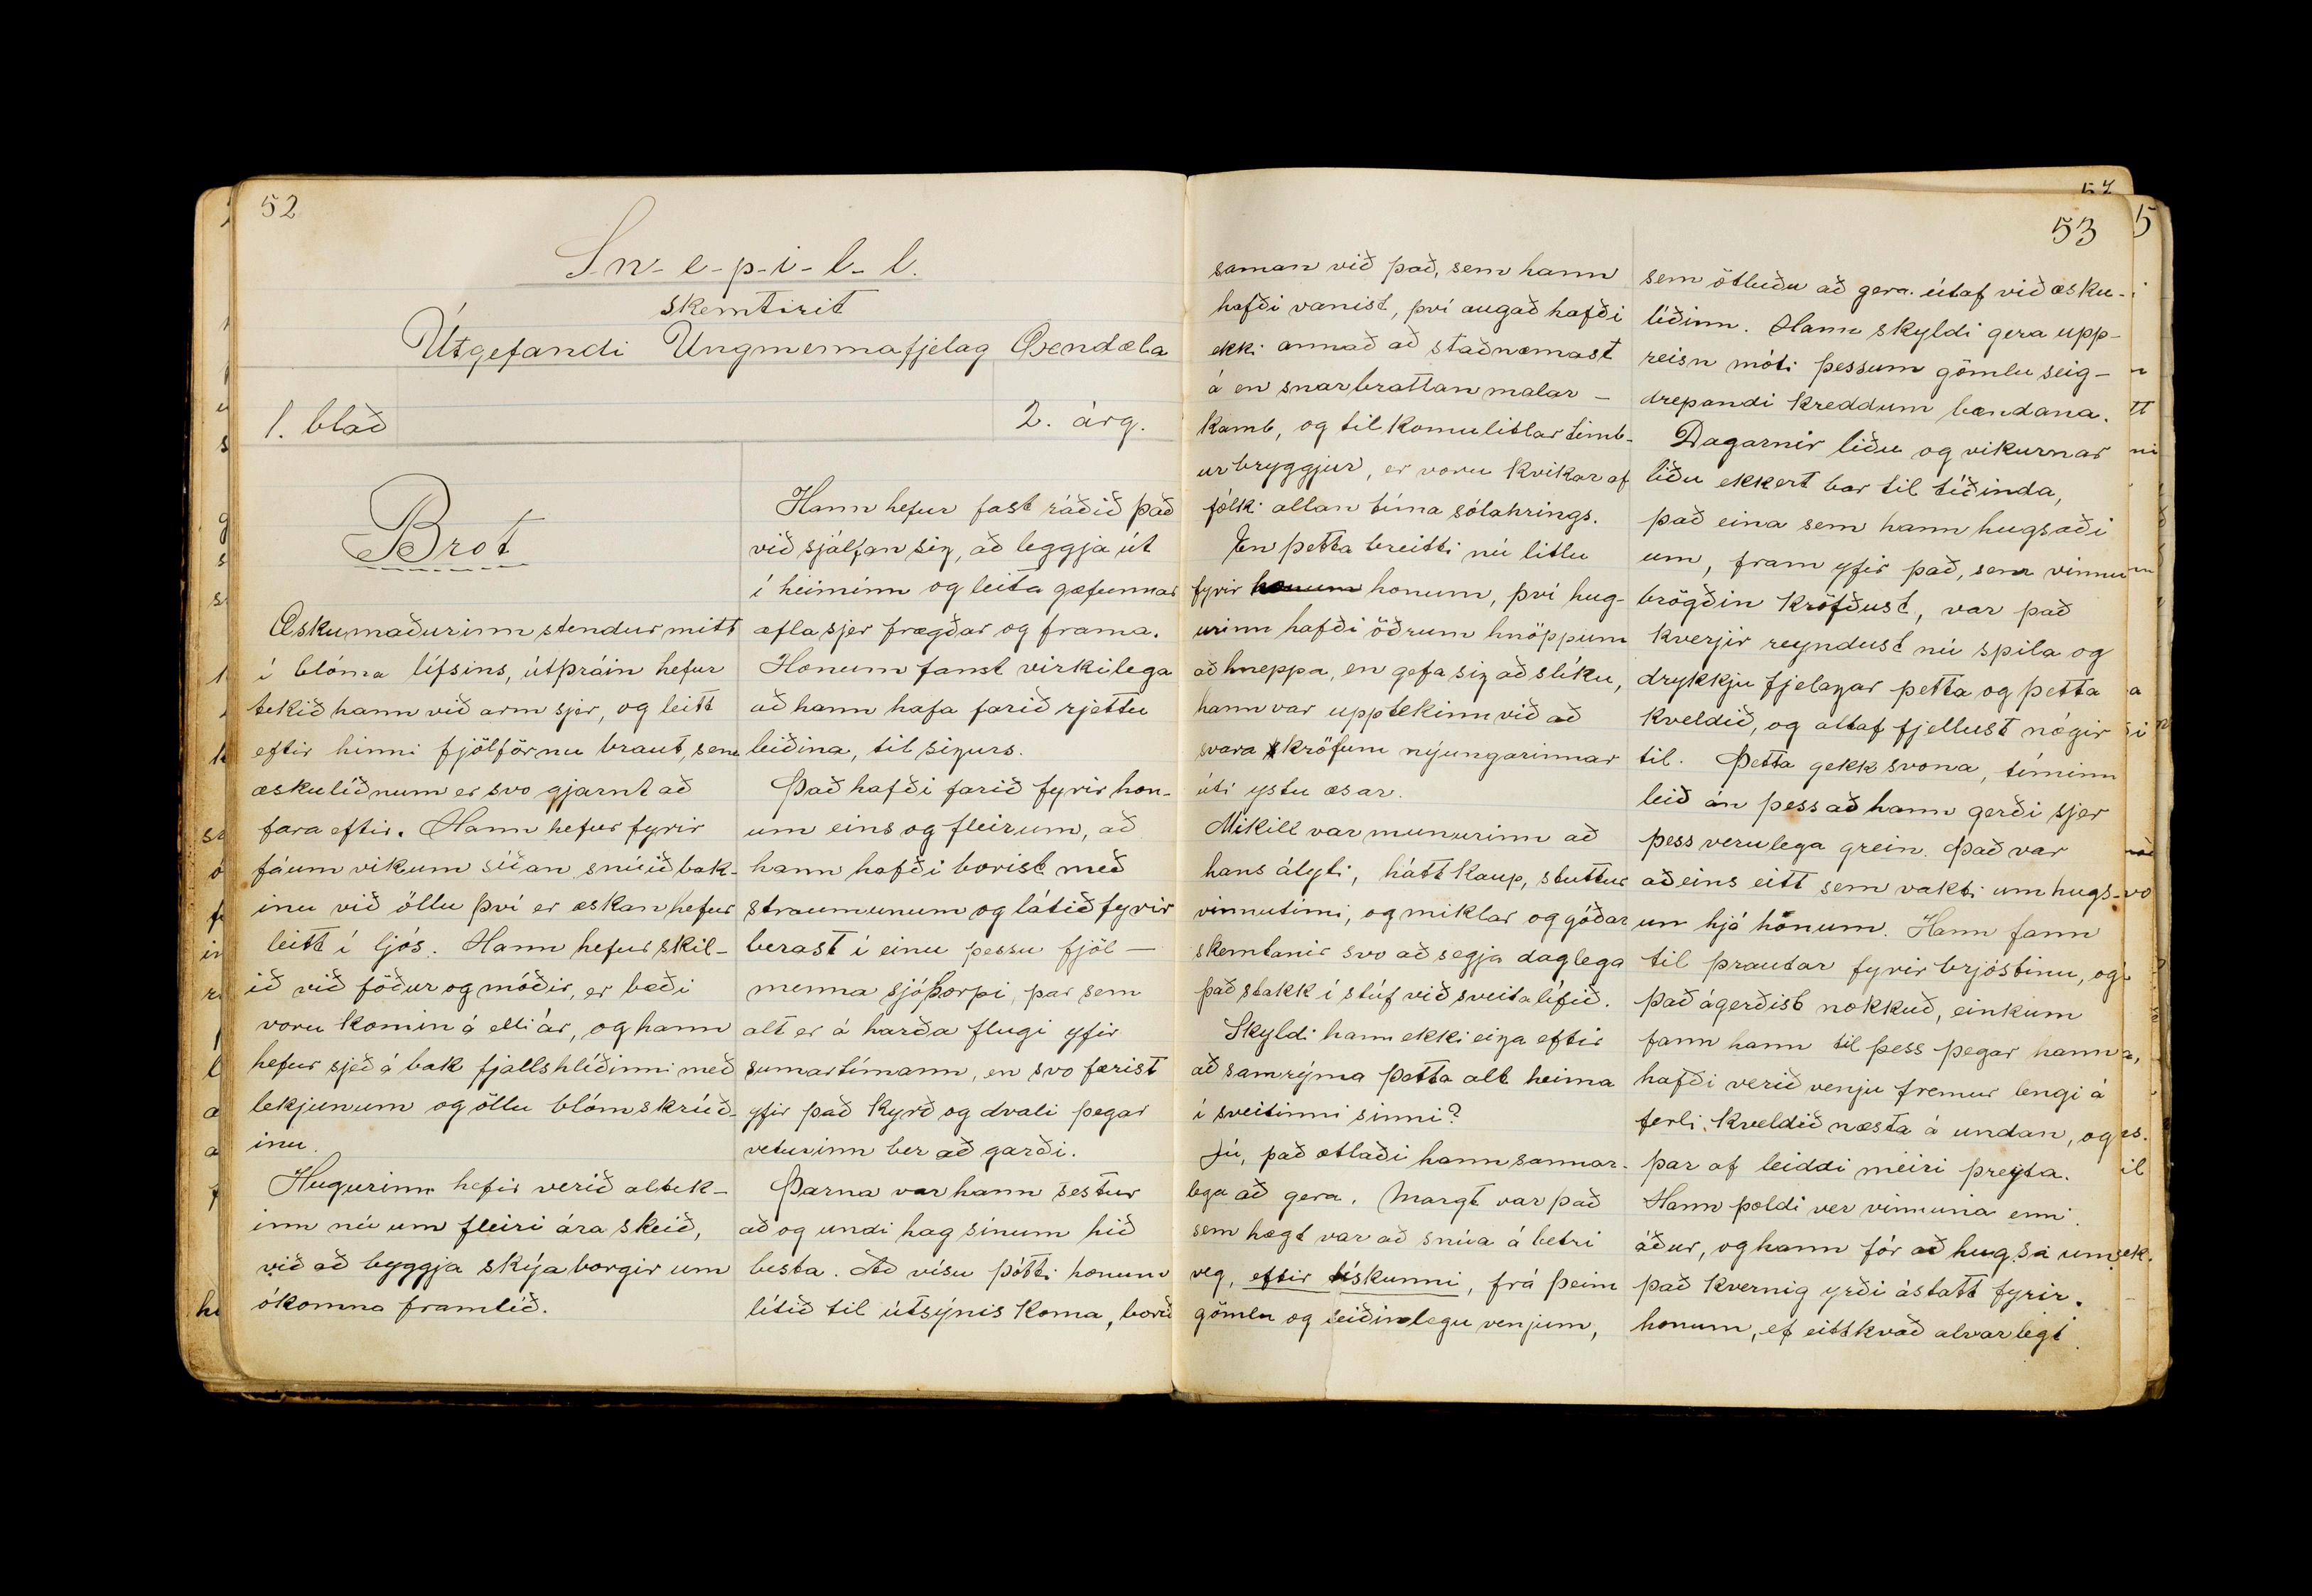 52
S-n-e-p-i-l-l.
skemtirit
Útgefandi Ungmennafjelag Öxndæla
1. blað
2. árg.
Brot
Æskumaðurinn stendur mitt
í blóma lífsins, útþráin hefur
tekið hann við arm sjer, og leitt
eftir hinni fjölförnu braut, sem
æskulíðnum er svo gjarnt að
fara eftir. Hann hefur fyrir
fáum vikum síðan snúið bak-
inu við öllu því er æskan hefur
leitt í ljós. Hann hefur skil-
ið við föður og móðir, er bæði
voru komin á elli ár, og hann
hefur sjeð á bak fjallshlíðinni með
lekjunum og öllu blómskrúð-
inu.
Hugurinn hefir verið altek-
inn nú um fleiri ára skeið,
við að byggja skýja borgir um
ókomna framtíð.
Hann hefur fast ráðið það
við sjálfan sig, að leggja út
í heiminn og leita gæfunnar
afla sjer frægðar og frama.
Honum fanst virkilega
að hann hafa farið rjettu
leiðina, til sigurs.
Það hafði farið fyrir hon-
um eins og fleirum, að
hann hafði borist með
straumunum og látið fyrir
berast í einu þessu fjöl-
menna sjóþorpi, þar sem
alt er á harða flugi yfir
sumartímann, en svo færist
yfir það kyrð og dvali þegar
veturinn ber að garði.
Þarna var hann sestur
að og undi hag sínum hið
besta. Að vísu þótti honum
lítið til útsýnis koma, borið
53
saman við það, sem hann
hafði vanist, því augað hafði
ekki annað að staðnæmast
á en snarbrattan malar-
kamb, og tilkomulitlar timb-
urbryggjur, er voru kvikar af
fólki allan tíma sólahrings.
En þetta breitti nú litlu
fyrir honum honum, því hug-
urinn hafði öðrum hnöppum
að hneppa, en gefa sig að slíku,
hann var upptekinn við að
svara kröfum nýungarinnar
úti ystu æsar.
Mikill var munurinn að
hans ályti, hátt kaup, stuttur
vinnutími, og miklar og góðar
skemtanir svo að segja daglega
það stakk í stúf við sveitalífið.
Skyldi hann ekki eiga eftir
að samrýma þetta alt heima
í sveitinni sinni?
Jú, það ætlaði hann sannar-
lega að gera. Margt var það
sem hægt var að snúa á betri
veg, eftir tískunni, frá þeim
gömlu og leiðinlegu venjum,
sem ötluðu að gera útaf við æsku-
líðinn. Hann skyldi gera upp-
reisn móti þessum gömlu seig-
drepandi kreddum bændana.
Dagarnir liðu og vikurnar
liðu ekkert bar til tíðinda,
það eina sem hann hugsaði
um, fram yfir það, sem vinnu
brögðin kröfðust, var það
hverjir reyndust nú spila og
drykkju fjelagar þetta og þetta
kveldið, og altaf fjellust nógir
til. Þetta gekk svona, tíminn
leið án þess að hann gerði sjer
þess verulega grein. Það var
aðeins eitt sem vakti umhugs-
un hjá hönum. Hann fann
til þrautar fyrir brjóstinu, og
það ágerðist nokkuð, einkum
fann hann til þess þegar hann
hafði verið venju fremur lengi á
ferli, kveldið næsta á undan, og
þar af leiddi meiri þreyta.
Hann þoldi ver vinnuna enn
áður, og hann fór að hugsa um
það hvernig yrði ástatt fyrir
honum, ef eitthvað alvarlegt